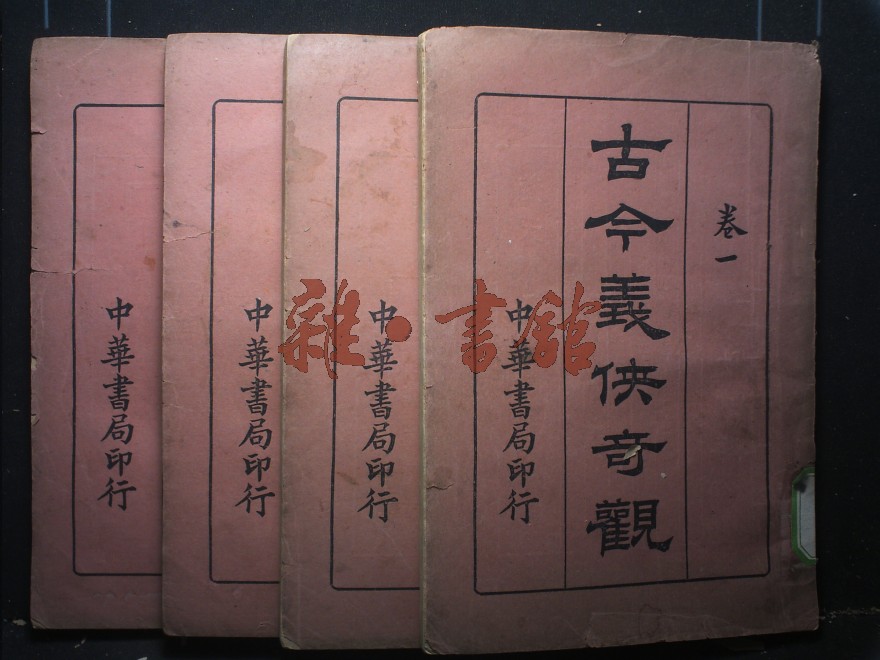 卷一
古今義俠奇觀
中華書局印行
中華書局印行
中華書局印行
中華書局印行
雜·書館